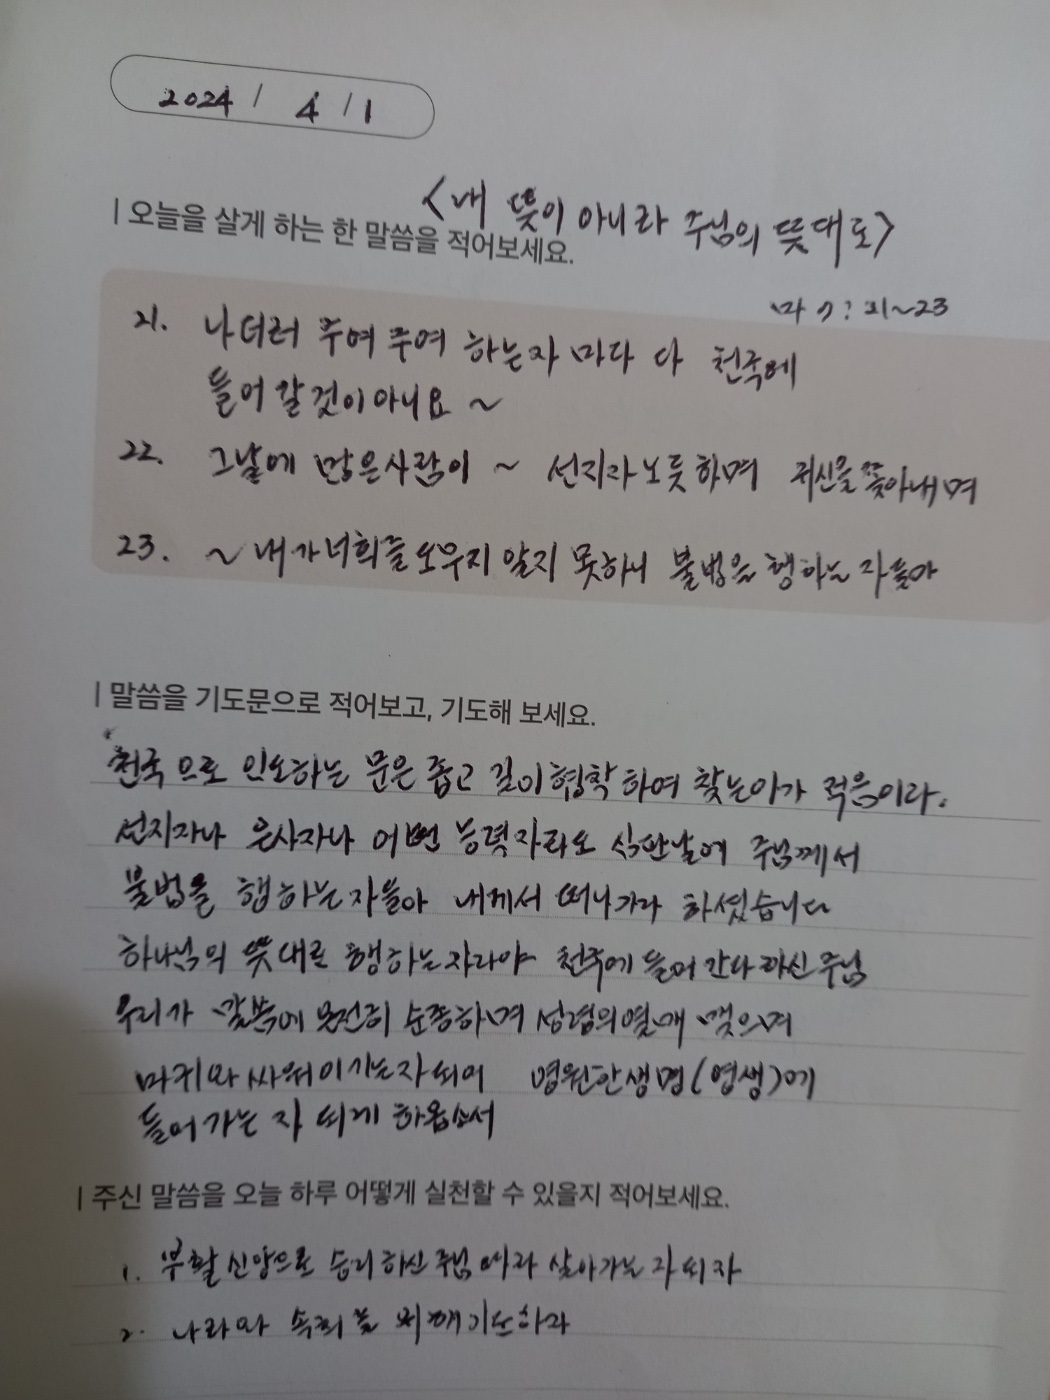 2024 / 4 / 1
<내 뜻이 아니라 주님의 뜻대로>
| 오늘을 살게 하는 한 말씀을 적어보세요.
마 7: 21~23
21. 나더러 주여 주여 하는자 마다 다 천국에
들어 갈것이 아니요 ~
22. 그날에 많은사람이 ~ 선지자노릇하며 귀신을 쫓아내며
23. ~ 내가너희를 도무지 알지 못하니 불법을 행하는 자들아
| 말씀을 기도문으로 적어보고, 기도해 보세요.
천국 으로 인도하는 문은 좁고 길이 협착하여 찾는이가 적음이라.
선지자나 은사자나 어떤 능력자라도 심판날에 주님께서
불법을 행하는자들아 내게서 떠나가라 하셨습니다
하나님의 뜻대로 행하는자라야 천국에 들어 간다 하신 주님
우리가 말씀에 온전히 순종하며 성령의열매 맺으며
마귀와 싸워이기는자 되어 영원한생명(영생)에
들어가는 자 되게 하옵소서
| 주신 말씀을 오늘 하루 어떻게 실천할 수 있을지 적어보세요.
1. 부활신앙으로 승리하신주님 따라 살아가는자 되자
2. 나라와 위해기도하라